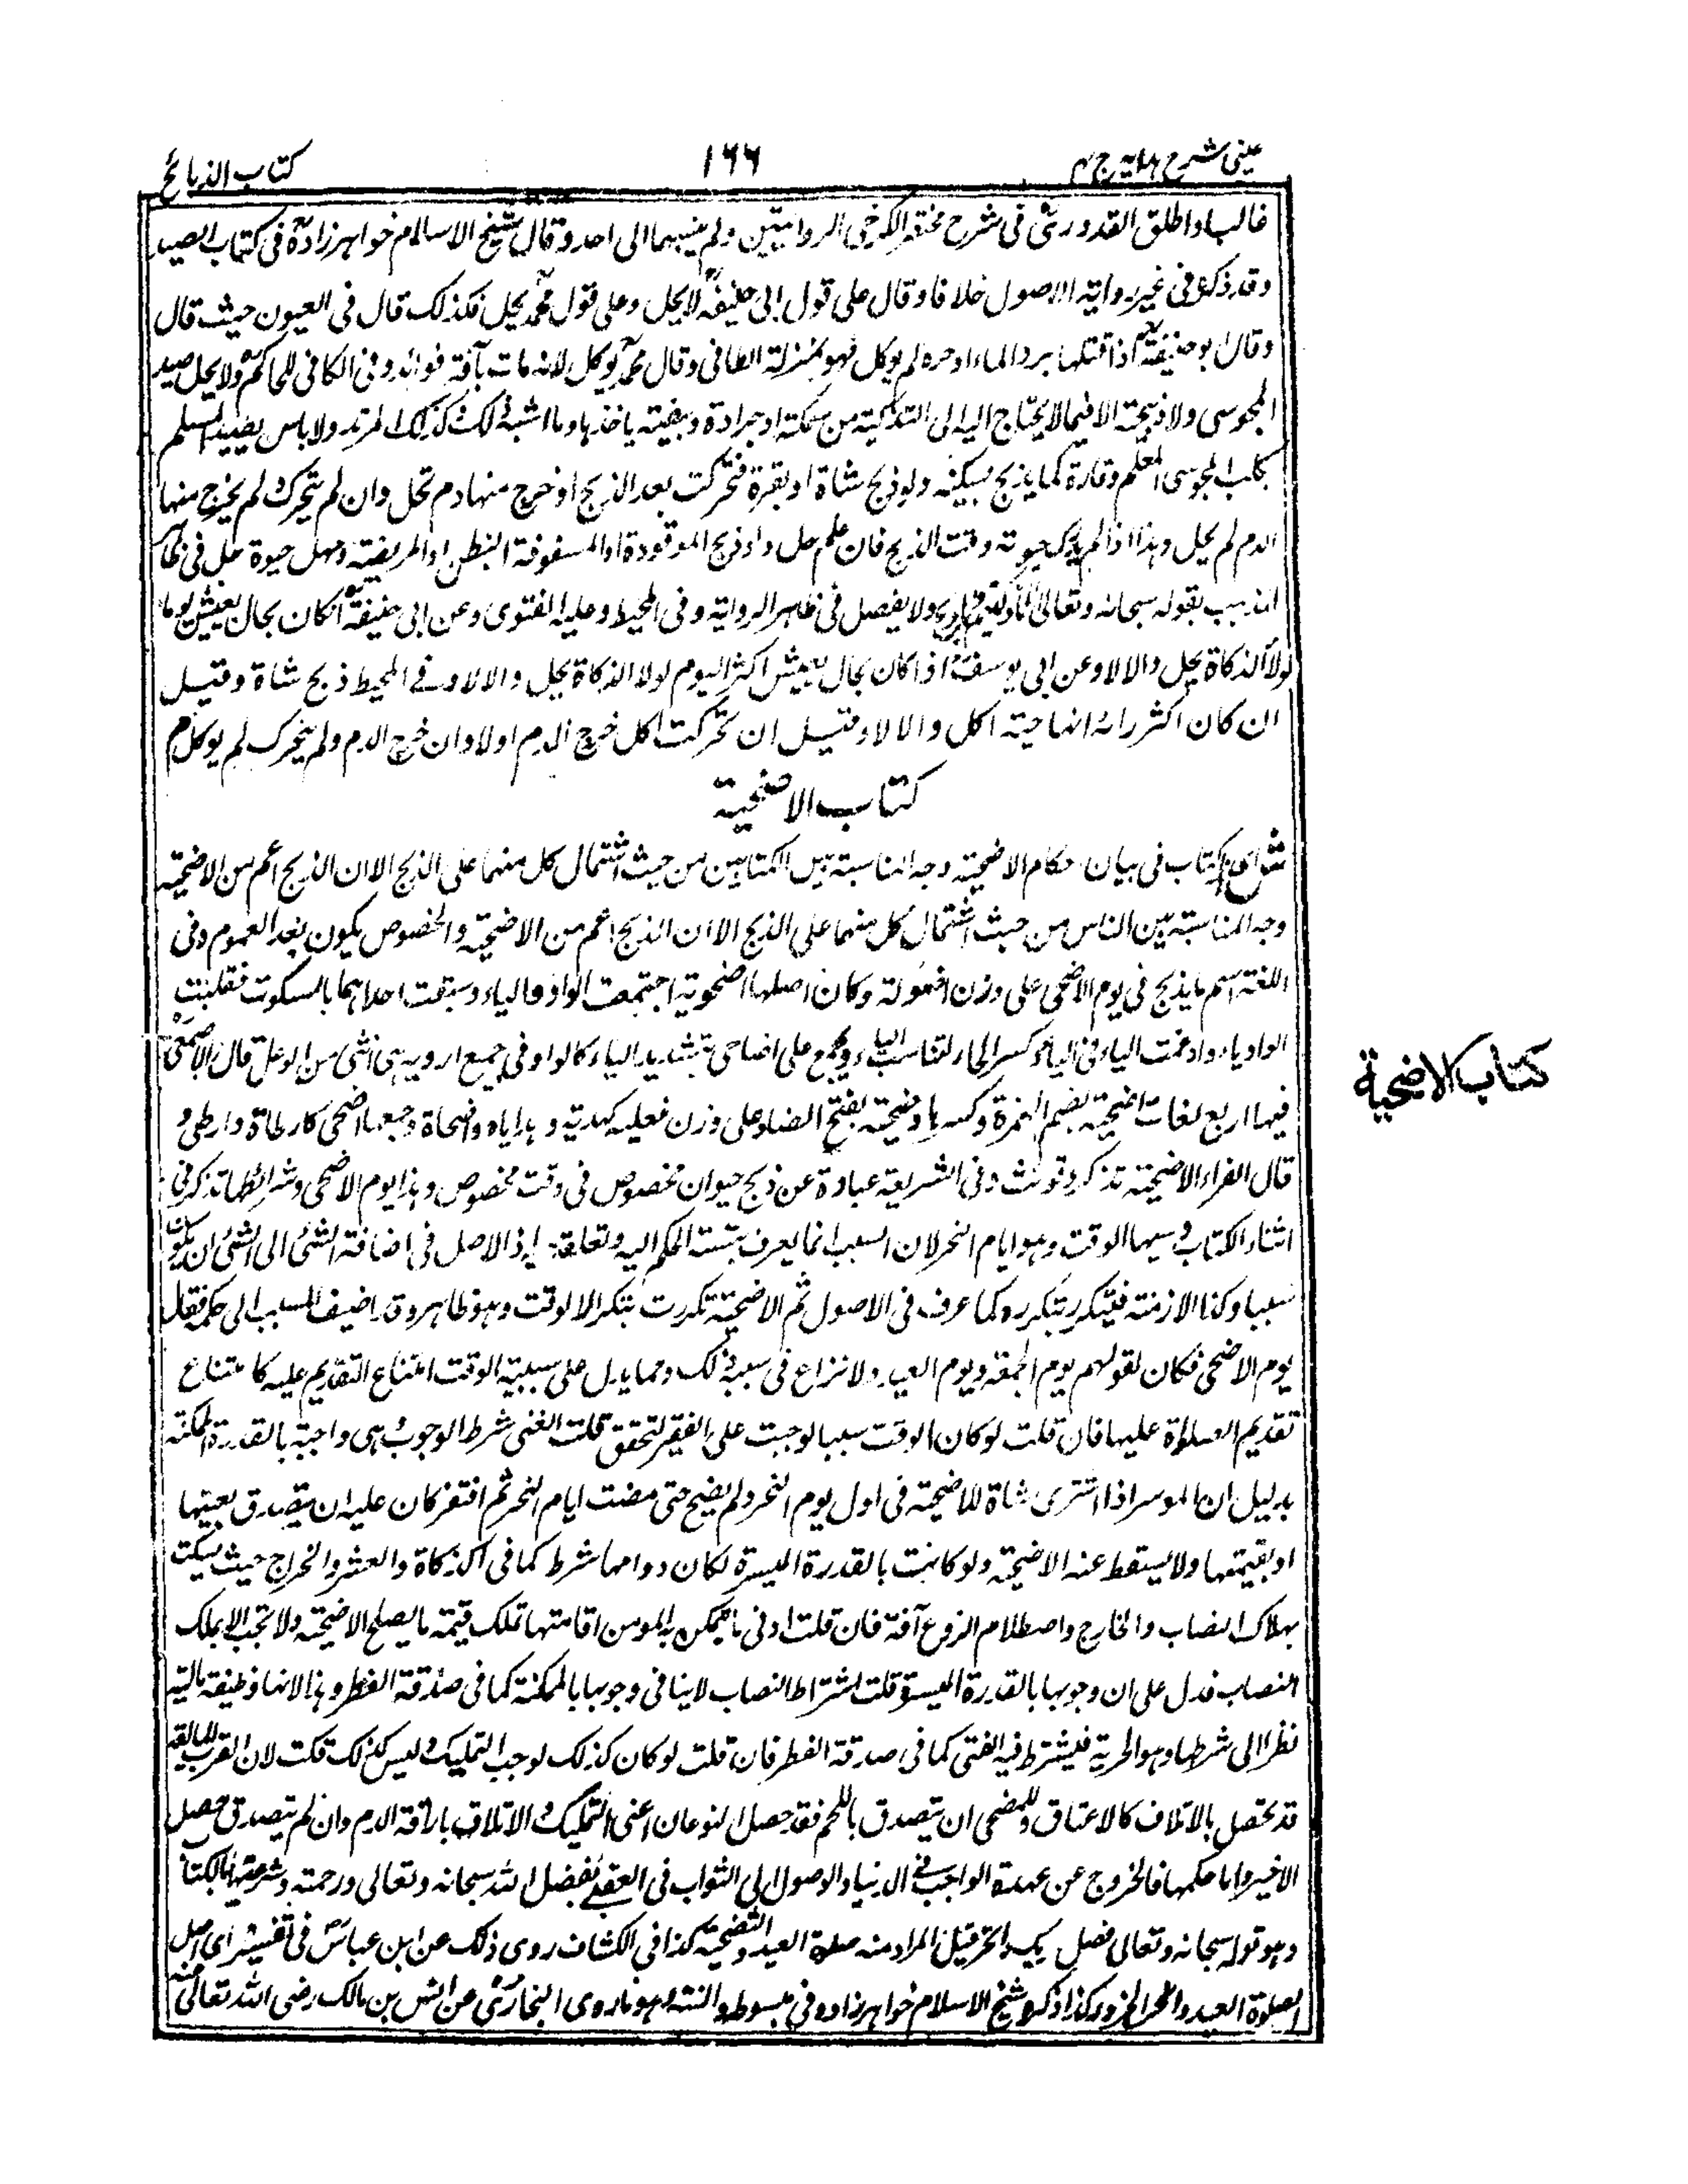 عینی شرح ہدایہ ج ۴
۱۶۶
کتاب الذبائح
غالبا واطلق القدوری فی شرح مختصر الکرخی الروایتین ولم ینسبهما الی احد وقال شیخ الاسلام خواہرزادہ فی کتاب الصید
وقد ذکر فی غیر روایة الاصول خلافا وقال علی قول ابی حنیفة لا یحل وعلی قول محمد یحل فکذلک قال فی العیون حیث قال
وقال ابو حنیفة اذا قتلها برد الماء او حره لم یوکل فهو بمنزلة الطافی وقال محمد یوکل لانه مات بآفة فوائد وفی الکافی للحاکم ولا یحل صید
المجوسی ولا ذبیحته الا فیما لا یحتاج الیه الی التذکیة من سمکة او جرادة وبیضة یاخذها وما اشبه ذلک کذلک المرتد ولا باس بصید المسلم
بکلب المجوسی المعلم وقاره کما یذبح بسکینه ولو ذبح شاة او بقرة فتحرکت بعد الذبح او خرج منها دم تحل وان لم یتحرک ولم یخرج منها
الدم لم یحل وهذا اذا لم یدرک حیوته وقت الذبح فان علم حل واذ ذبح الموقوذة او المسقوفة البطن او المریضة وبهل حیوة حل فی ظاهر
المذهب بقوله سبحانه وتعالی ولا یفصل فی ظاهر الروایة وفی المحیط وعلیه الفتوی وعن ابی حنیفة ان کان بحال یعیش یوما
لولا الذکاة یحل والا لا وعن ابی یوسف اذا کان بحال یعیش اکثر الیوم لولا الذکاة یحل والا لا وفی المحیط ذبح شاة وقیل
ان کان اکثر رایه انها حیة اکل والا لا وقیل ان تحرکت اکل خرج الدم اولا وان خرج الدم ولم یتحرک لم یوکل م
کتاب الاضحیة
ش ای ہذا کتاب فی بیان احکام الاضحیة وجه المناسبة بین الکتابین من حیث اشتمال کل منهما علی الذبح الا ان الذبح اعم من الاضحیة
وجه المناسبة بین الناس من حیث اشتمال کل منهما علی الذبح الا ان الذبح اعم من الاضحیة والخصوص یکون بعد العموم وفی
اللغة اسم ما یذبح فی یوم الاضحی علی وزن افعولة وکان اصلها اضحویة اجتمعت الواو والیاء وسبقت احداهما بالسکوت فقلبت
الواو یاء وادغمت الیاء فی الیاء وکسر الحاء لتناسب الیاء ویجمع علی اضاحی بتشدید الیاء کالواو فی جمیع ارویة هی انثی من الوعل قال الاصمعی
کتاب الاضحیة
فیها اربع لغات اضحیة بضم الهمزة وکسرها وضحیة بفتح الضاد علی وزن فعیلة کهدیة وهدایا واضحاة وجمعها اضحی کارطاة وارطی
قال الفراء الاضحیة تذکر وتونث وفی الشریعة عبارة عن ذبح حیوان مخصوص فی وقت مخصوص وهذا یوم الاضحی وشرائطها تذکر فی
اثناء الکتاب وسببها الوقت وهو ایام النحر لان السبب انما یعرف بنسبة الحکم الیه وتعلقه اذ الاصل فی اضافة الشئ الی الشئ ان یکون
سببا وکذا الازمنة فیتکرر بتکرره کما عرف فی الاصول ثم الاضحیة تکررت بتکرر الوقت وهو ظاهر وقد اضیف السبب الی حکمه فقال
یوم الاضحی فکان لقولهم یوم الجمعة ویوم العید ولا نزاع فی سببیة ذلک ومما یدل علی سببیة الوقت امتناع التقدیم علیه کامتناع
تقدیم الصلوة علیها فان قلت لو کان الوقت سببا لوجبت علی الفقیر لتحقق قلت الغنی شرط الوجوب هی واجبة بالقدرة الممکنة
بدلیل ان الموسر اذا اشتری شاة للاضحیة فی اول یوم النحر ولم یضح حتی مضت ایام النحر ثم افتقر کان علیه ان یتصدق بعینها
او بقیمتها ولا یسقط عنه الاضحیة ولو کانت بالقدرة المیسرة لکان دوامها شرط کما فی الزکاة والعشر والخراج حیث یسقط
بهلاک النصاب والخارج واصطلام الزرع آفة فان قلت ادنی ما یتمکن به المومن اقامتها تملک قیمة ما یصلح الاضحیة ولا تجب الا بملک
النصاب فدل علی ان وجوبها بالقدرة المیسرة قلت اشتراط النصاب لا ینافی وجوبها بالممکنة کما فی صدقة الفطر وهذا لانها وظیفة مالیة
نظرا الی شرطها وهو الحریة فیشترط فیه الغنی کما فی صدقة الفطر فان قلت لو کان کذلک لوجب التملیک ولیس کذلک قلت لان القرب المالیة
قد تحصل بالاتلاف کالاعتاق وللمضحی ان یتصدق باللحم فقد حصل النوعان اعنی التملیک والاتلاف باراقة الدم وان لم یتصدق حصل
الاخیر واما حکمها فالخروج عن عهدة الواجب فی الدنیا والوصول الی الثواب فی العقبی بفضل الله سبحانه وتعالی ورحمته وشرعیتها بالکتاب
وهو قوله سبحانه وتعالی فصل لربک وانحر قیل المراد منه صلوة العید والتضحیة کذا فی الکشاف روی ذلک عن ابن عباس فی تفسیره ای صل
الصلوة العید وانحر الجزور وکذا ذکره شیخ الاسلام خواہرزاده فی مبسوطه والسنة وهو ما روی البخاری عن انس بن مالک رضی الله تعالی عنه